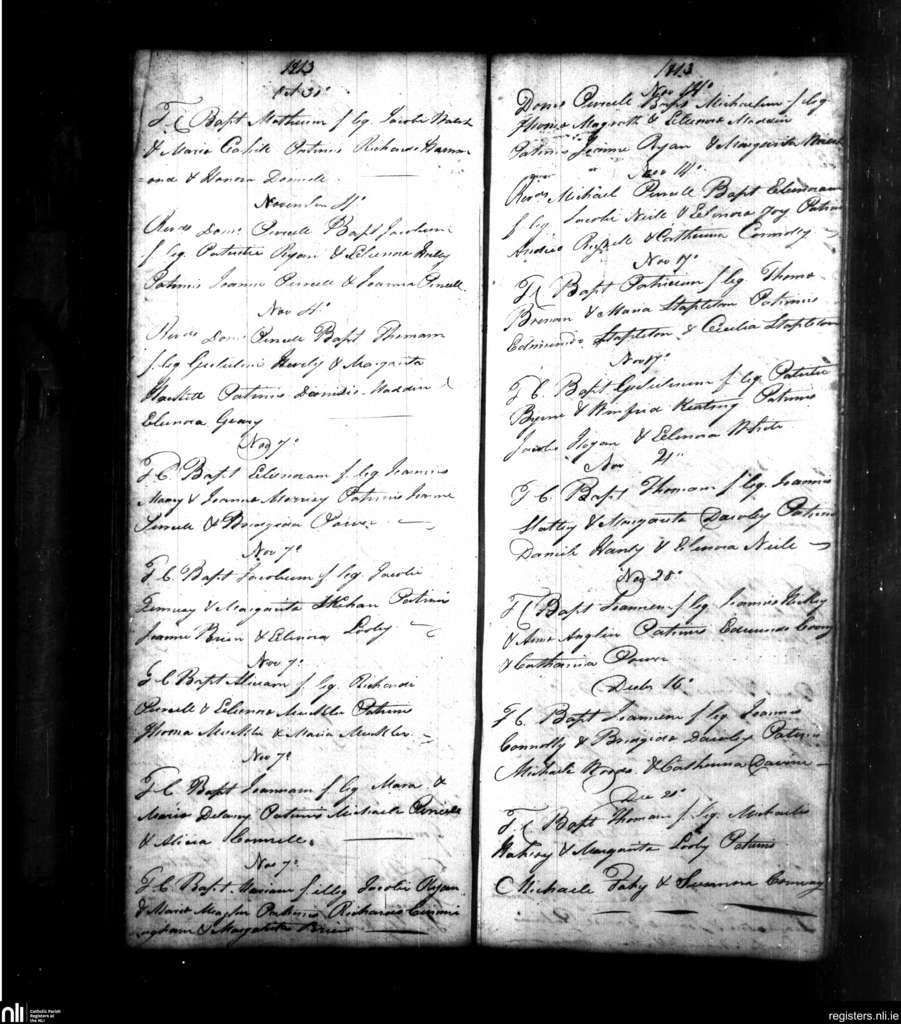 1813
Oct 31º
F. C. Bapt Matheum f. leg. Jacobi Walsh
& Maria Cahile Patrinis Richardo Hamm
=ond & Honora Donnele
November 4º
Revds Doms Purcele Bapt Jacobum
f leg. Patritii Ryan & Elenora
Patrinis Joanne Purcele & Joanna Purcele
Nov 4º
Revds Doms Purcele Bapt Thomam
f. leg Gulielmi & Margarita
Hackett Patrinis Dionisio Madden &
Elenora Geary
Nov 7º
F. C. Bapt Elenoram f. leg Joannis
& Joanna Morrisy Patrinis Joanne
Purcele & Bridgida Power
Nov 7º
F. C. Bapt Jacobum f leg. Jacobi
& Margarita Patrinis
Joanne Brien & Elenora Looby
Nov 7º
F. C. Bapt f. leg. Richardi
Purcele & Elenora Meehler Patrinis
Thoma Meehler & Maria Meehler
Nov 7º
F. C. Bapt Joannam f leg &
Maria Delany Patrinis Michaele Purcele
& Alicia Connele
Nov 7º
F. C. Bapt Mariam f. illeg Jacobi Ryan
& Maria Meagher Patrinis Richardo Cunni
ngham & Margarita Brien
1813
Nov 14º
Doms Purcele Bapt Michaelem f leg
Thoma Magrath & Elenora Madden
Patrinis Joanne Ryan & Margarita
Nov 14º
Revds Michael Purcele Bapt Elenoram
f leg Jacobi Neile & Elenora Foy Patrinis
Andreo Russele & Catherina Connoly
Nov 17º
F. C. Bapt Patricium f leg. Thoma
Brenan & Maria Stapleton Patrinis
Edmundo Stapleton & Cecilia Stapleton
Nov 17º
F. C. Bapt Gulielmum f. leg Patritii
Byrne & Winfrid Keating Patrinis
Jacobo Hogan & Elenora White
Nov 21º
F. C. Bapt Thomam f leg. Joannis
Slattery & Margarita Dawley Patrinis
Daniele Hanly & Elenora Neile
Nov 28º
F. C. Bapt Joannem f leg Joannis Hickey
& Anna Anglin Patrinis Edmundo
& Catharina Power
Decbr 16º
F. C. Bapt Joannem f leg Joannis
Connolly & Bridgida Dawley Patrinis
Michaele & Catherina
Dec 20º
F. C. Bapt Thomam f. leg. Michaelis
& Margarita Looby Patrinis
Michaele Fahy & Susanna Conway
nli
Catholic Parish
Registers at
the NLI
registers.nli.ie